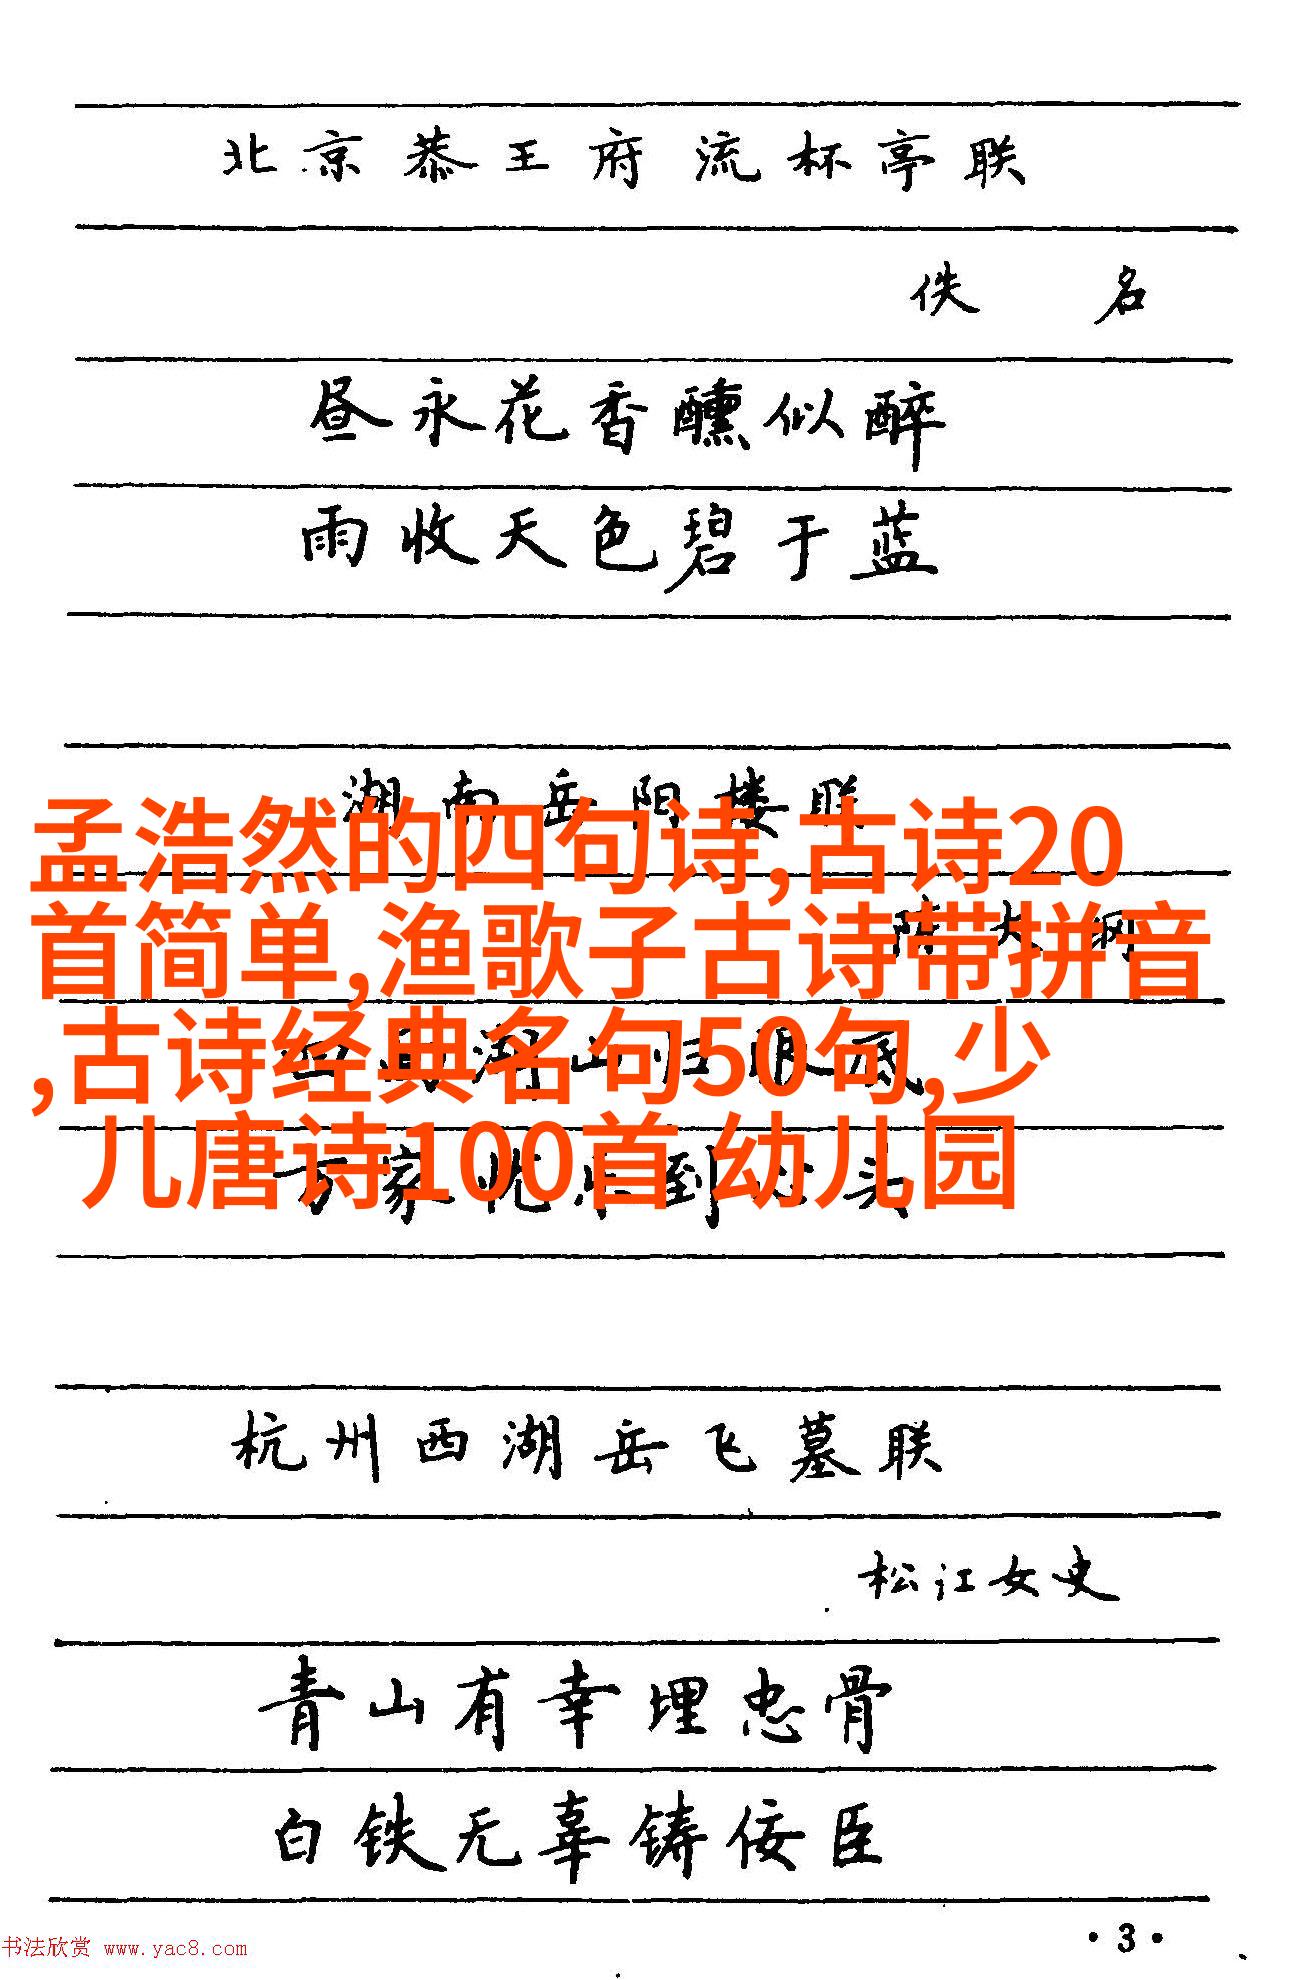 北京恭王府流杯亭联
佚 名
昼永花香醺似醉
雨收天色碧于蓝
湖南岳阳楼联
孟浩然的四句诗,古诗20
陈大纲
首简单,渔歌子古诗带拼音
四面湖山归眼底
,古诗经典名句50句,少
万家忧乐到心头
儿唐诗100首 幼儿园
杭州西湖岳飞墓联
松江女史
青山有幸埋忠骨
白铁无辜铸佞臣
·3·
书法欣赏 www.yac8.com